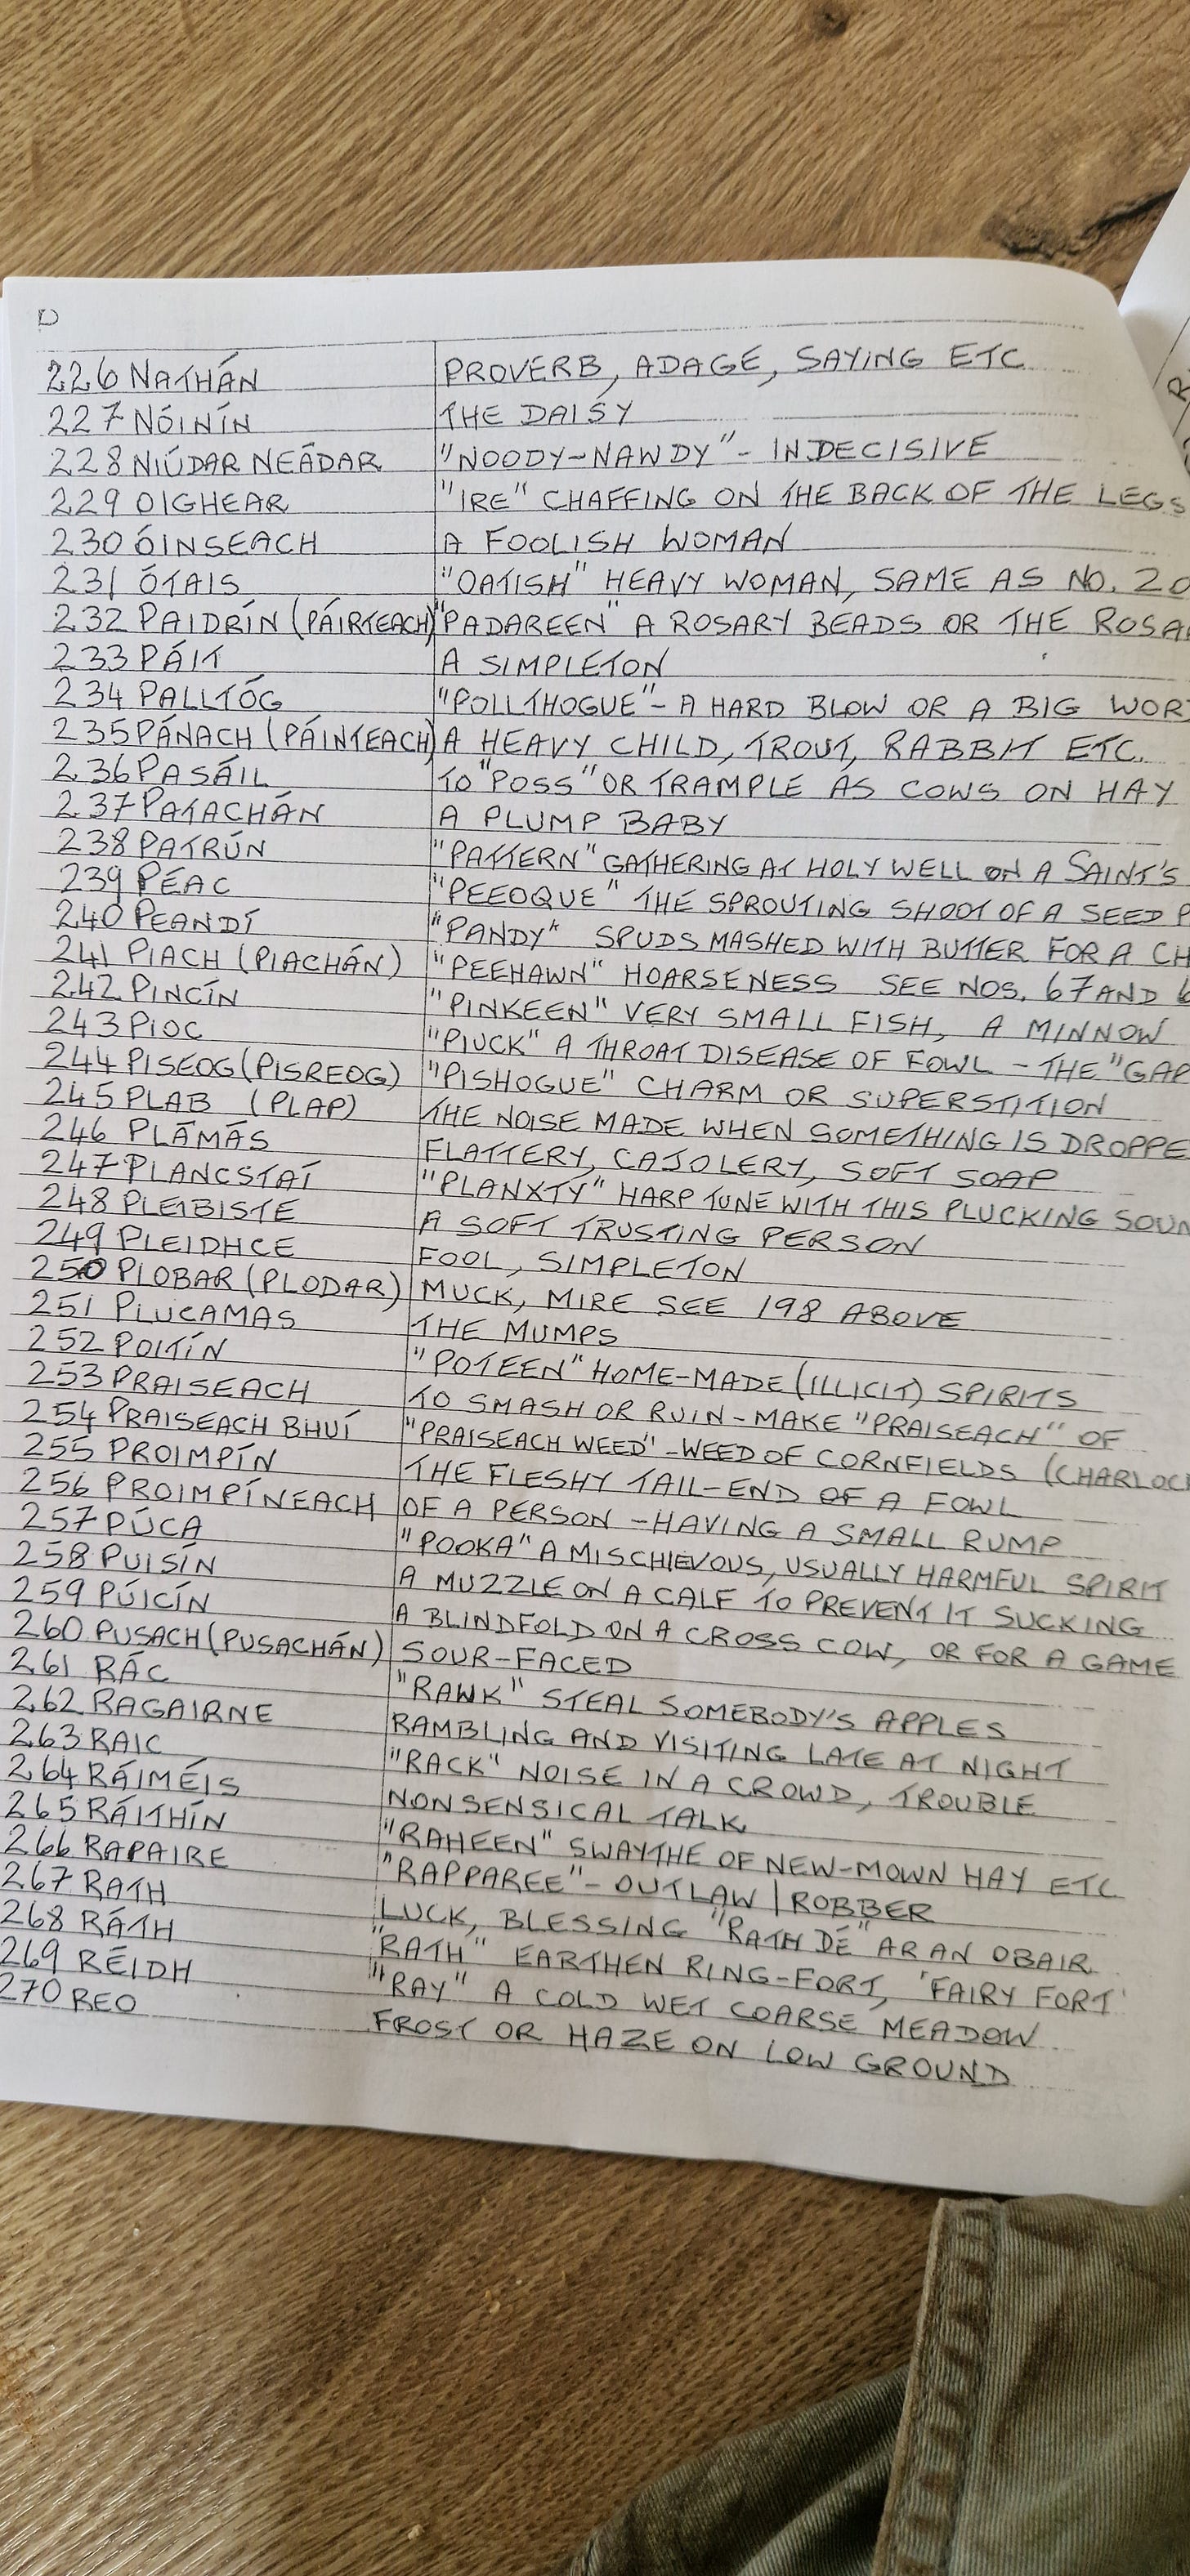 D
226 NATHÁN PROVERB, ADAGE, SAYING ETC
227 NÓINÍN THE DAISY
228 NIÚDAR NEÁDAR "NOODY-NAWDY" - INDECISIVE
229 OIGHEAR "IRE" CHAFFING ON THE BACK OF THE LEGS
230 ÓINSEACH A FOOLISH WOMAN
231 ÓTAIS "OATISH" HEAVY WOMAN, SAME AS NO. 20
232 PAIDRÍN (PÁIRTEACH) "PADAREEN" A ROSARY BEADS OR THE ROSA
233 PÁIT A SIMPLETON
234 PALLTÓG "POLLTHOGUE" - A HARD BLOW OR A BIG WOR
235 PÁNACH (PÁINTEACH) A HEAVY CHILD, TROUT, RABBIT ETC.
236 PASÁIL TO "POSS" OR TRAMPLE AS COWS ON HAY
237 PATACHÁN A PLUMP BABY
238 PATRÚN "PATTERN" GATHERING AT HOLY WELL ON A SAINT'S
239 PÉAC "PEEOQUE" THE SPROUTING SHOOT OF A SEED P
240 PEANDÍ "PANDY" SPUDS MASHED WITH BUTTER FOR A CH
241 PIACH (PIACHÁN) "PEEHAWN" HOARSENESS SEE NOS. 67 AND 6
242 PINCÍN "PINKEEN" VERY SMALL FISH, A MINNOW
243 PIOC "PIUCK" A THROAT DISEASE OF FOWL - THE "GAP
244 PISEOG (PISREOG) "PISHOGUE" CHARM OR SUPERSTITION
245 PLAB (PLAP) THE NOISE MADE WHEN SOMETHING IS DROPPE
246 PLÁMÁS FLATTERY, CAJOLERY, SOFT SOAP
247 PLANCSTAÍ "PLANXTY" HARP TUNE WITH THIS PLUCKING SOUN
248 PLEIBISTE A SOFT TRUSTING PERSON
249 PLEIDHCE FOOL, SIMPLETON
250 PLOBAR (PLODAR) MUCK, MIRE SEE 198 ABOVE
251 PLUCAMAS THE MUMPS
252 POITÍN "POTEEN" HOME-MADE (ILLICIT) SPIRITS
253 PRAISEACH TO SMASH OR RUIN - MAKE "PRAISEACH" OF
254 PRAISEACH BHUÍ "PRAISEACH WEED' - WEED OF CORNFIELDS (CHARLOC
255 PROIMPÍN THE FLESHY TAIL-END OF A FOWL
256 PROIMPÍNEACH OF A PERSON - HAVING A SMALL RUMP
257 PÚCA "POOKA" A MISCHIEVOUS, USUALLY HARMFUL SPIRIT
258 PUISÍN A MUZZLE ON A CALF TO PREVENT IT SUCKING
259 PÚICÍN A BLINDFOLD ON A CROSS COW, OR FOR A GAME
260 PUSACH (PUSACHÁN) SOUR-FACED
261 RÁC "RAWK" STEAL SOMEBODY'S APPLES
262 RAGAIRNE RAMBLING AND VISITING LATE AT NIGHT
263 RAIC "RACK" NOISE IN A CROWD, TROUBLE
264 RÁIMÉIS NONSENSICAL TALK
265 RÁITHÍN "RAHEEN" SWAYTHE OF NEW-MOWN HAY ETC
266 RAPAIRE "RAPPAREE" - OUTLAW / ROBBER
267 RATH LUCK, BLESSING "RATH DÉ" AR AN OBAIR
268 RÁTH "RATH" EARTHEN RING-FORT, 'FAIRY FORT'
269 RÉIDH "RAY" A COLD WET COARSE MEADOW
270 REO FROST OR HAZE ON LOW GROUND